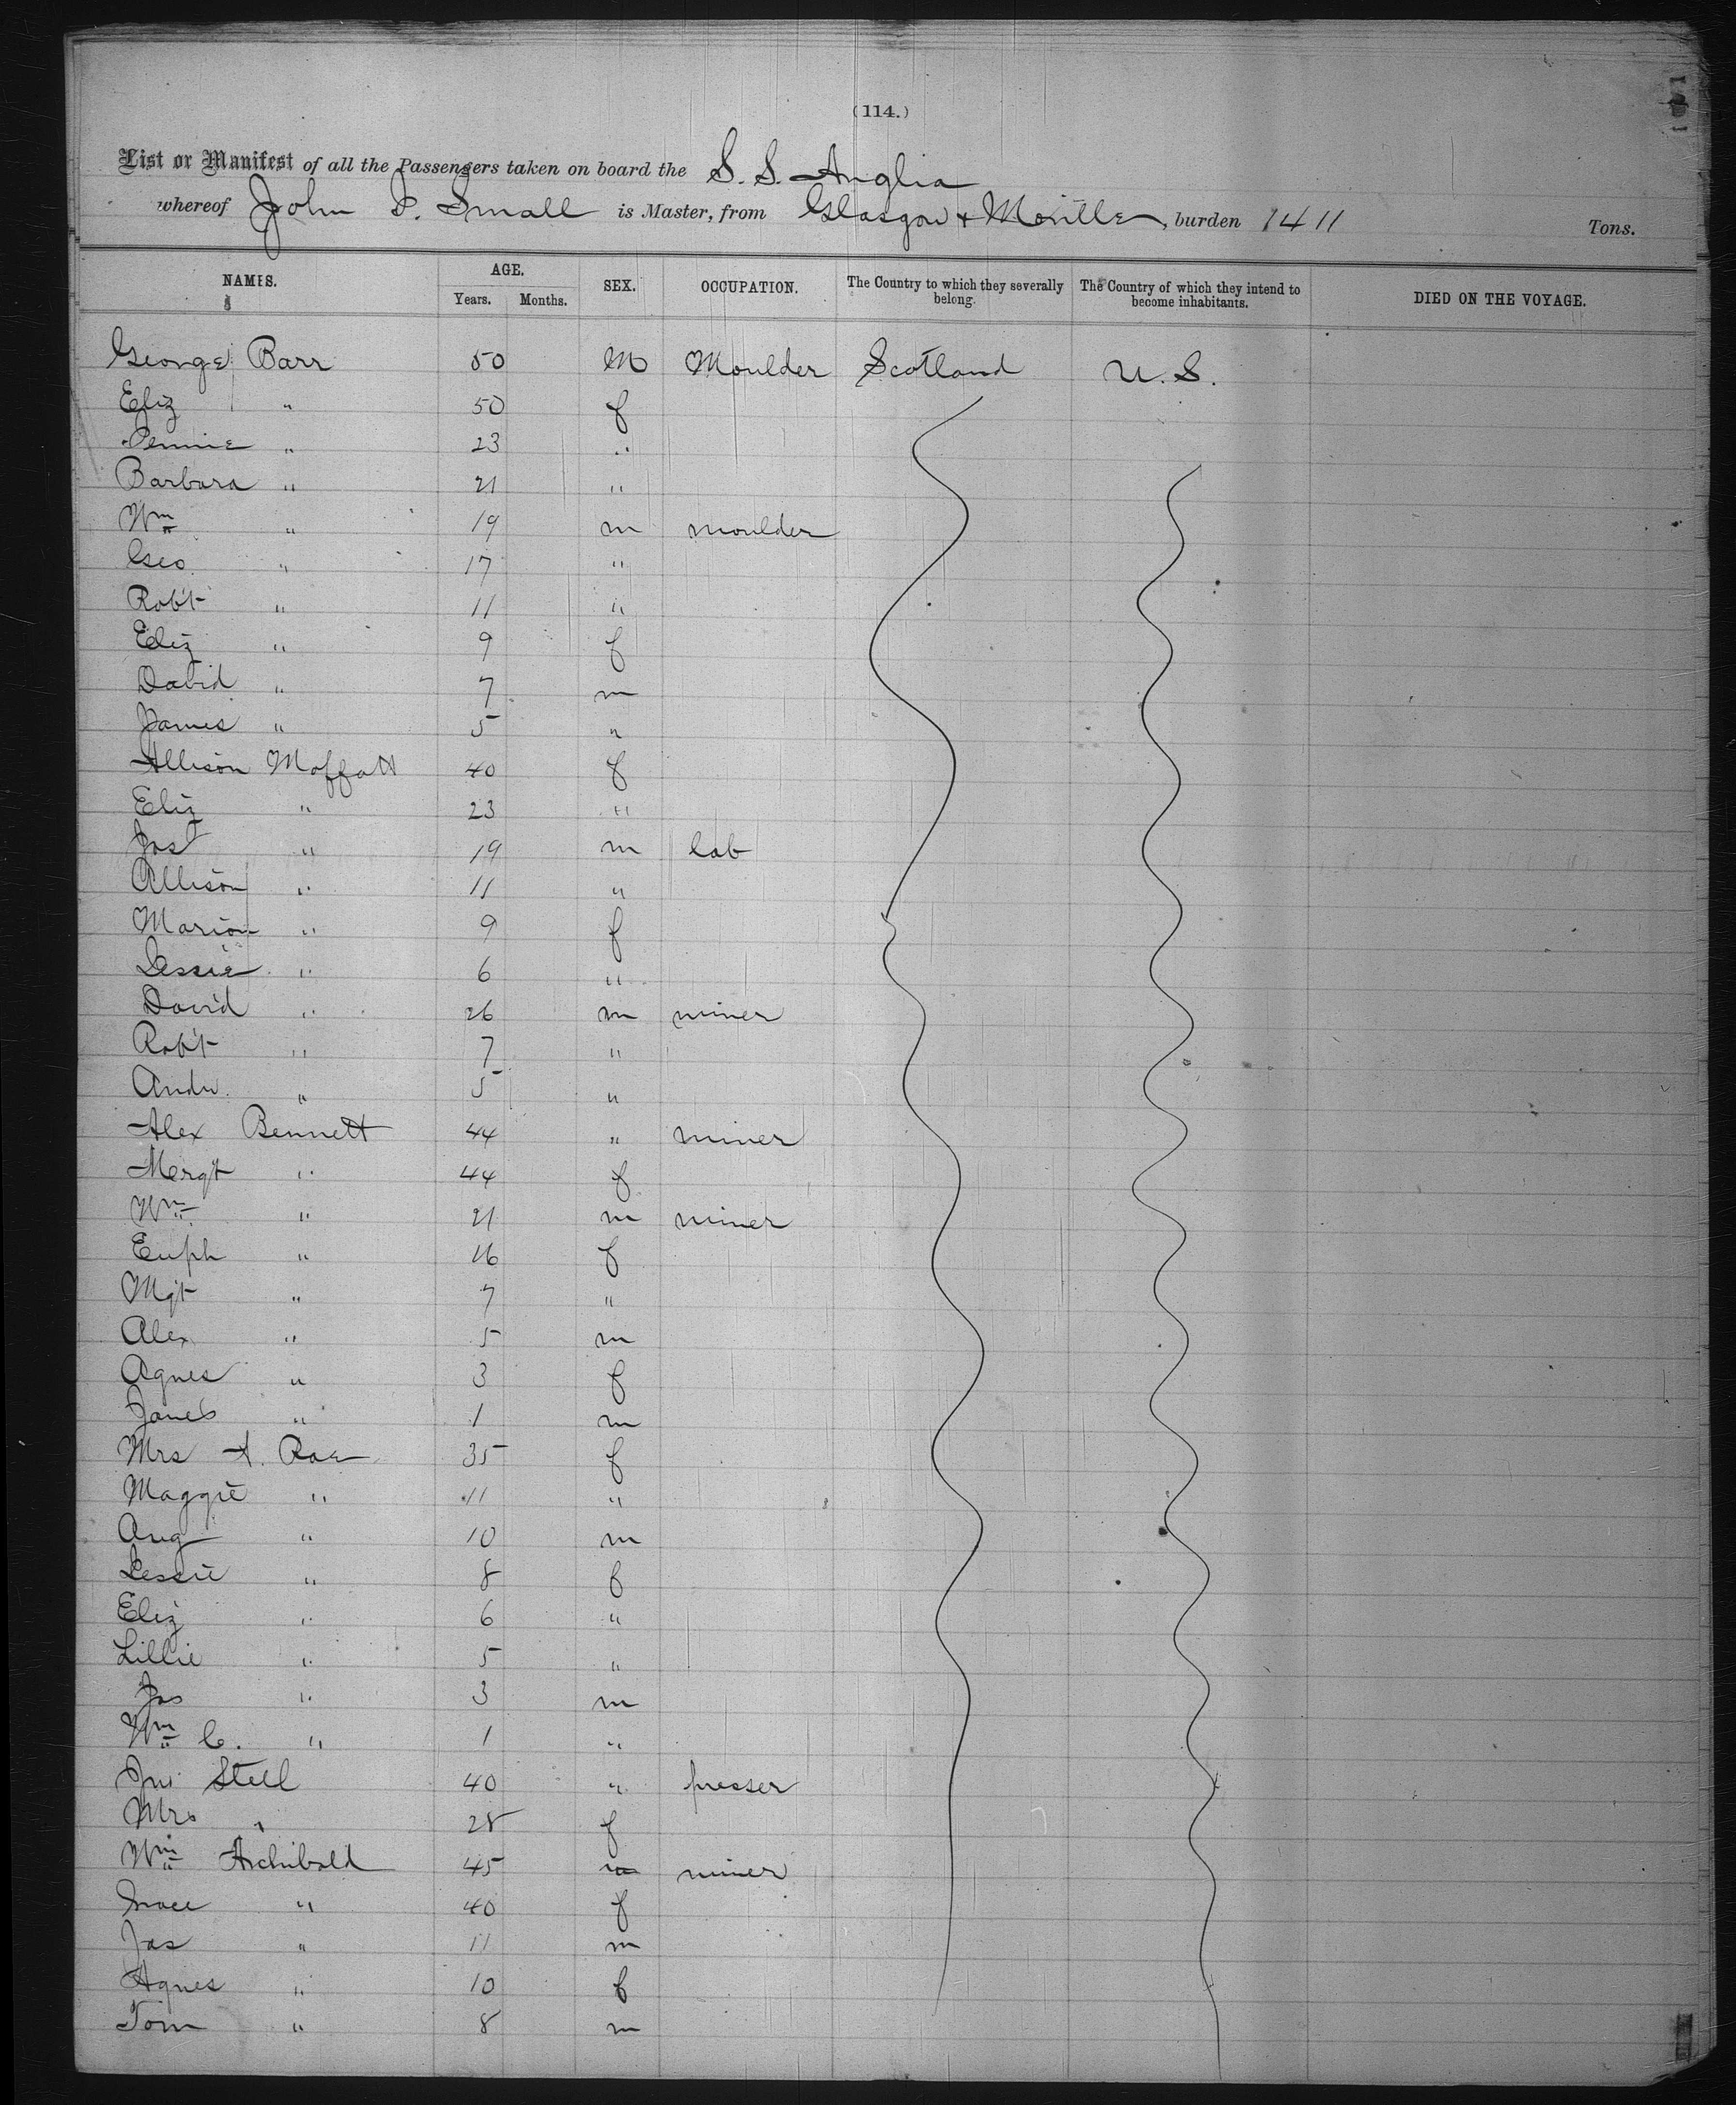 (114.)
List or Manifest of all the Passengers taken on board the S. S. Anglia
whereof John S. Small is Master, from Glasgow + Moville, burden 1411 Tons.
NAMES. AGE. Years. Months. SEX. OCCUPATION. The Country to which they severally belong. The Country of which they intend to become inhabitants. DIED ON THE VOYAGE.
George Barr 50 M Moulder Scotland U. S.
Eliz " 50 f
" 23 "
Barbara " 21 "
Wm " 19 m moulder
Geo " 17 "
Robt " 11 "
Eliz " 9 f
David " 7 m
James " 5 "
Allison Moffatt 40 f
Eliz " 23 "
Jas " 19 m lab
Allison " 11 "
Marion " 9 f
Jessie " 6 "
David " 26 m miner
Robt " 7 "
Andw. " 5 "
Alex Bennett 44 " miner
Mergt " 44 f
Wm " 21 m miner
Euph " 16 f
Mgt " 7 "
Alex " 5 m
Agnes " 3 f
James " 1 m
Mrs A. Rae 35 f
Maggie " 11 "
Aug " 10 m
Jessie " 8 f
Eliz " 6 "
Lillie " 5 "
Jas " 3 m
Wm C. " 1 "
Jno Stell 40 " presser
Mrs " 28 f
Wm Archibald 45 m miner
Grace " 40 f
Jas " 11 m
Agnes " 10 f
Tom " 8 m